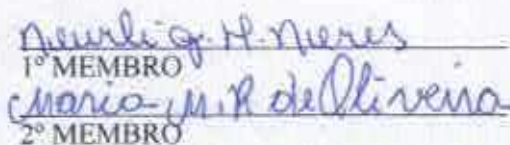 Neurli g. H. Nieres
1º MEMBRO
Maria M. R de Oliveira
2º MEMBRO